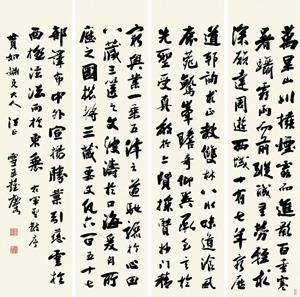 萬里山川撥煙霞而進影百重寒
暑躡霜雨而前蹤誠重勞輕求
深願達周遊西域十有七年窮歷
道邦詢求正教雙林八水味道飡風
鹿苑鷲峯瞻奇仰異承至言於
先聖受真教於上賢探賾妙門精
窮奧業一乘五律之道馳驟於心田
八藏三篋之文波濤於口海爰自所
歷之國總將三藏要文凡六百五十七
部譯布中外宣揚勝業引慈雲於
西極注法雨於東垂 右聖教序
大人法正